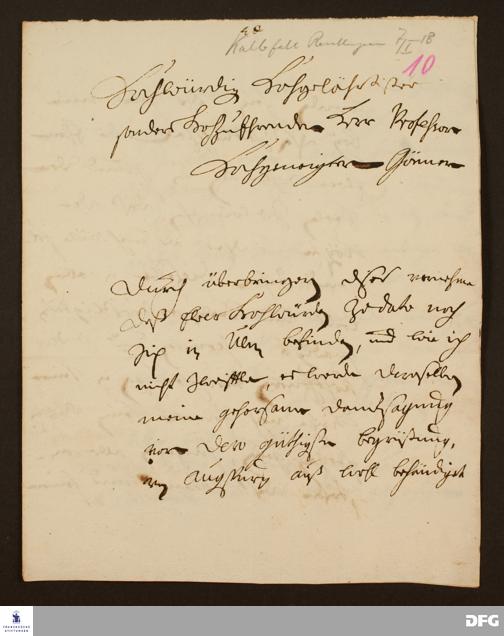 Kalbfell Reutlingen 7/I 18
10
Hochwürdig Hochgelährtister
sonders HochzuEhrender Herr Professor
Hochgeneigter Gönner
Durch überbringern dises vernehme
daß Euer Hochwürden Zedato noch
sich in Ulm befinden, und wie ich
nicht Zweiffle, es werde deroselben
meine gehorsame dancksagung
vor dero güthigste begrüssung,
in Augspurg auß wohl behändiget
FRANCKESCHE
STIFTUNGEN
DFG